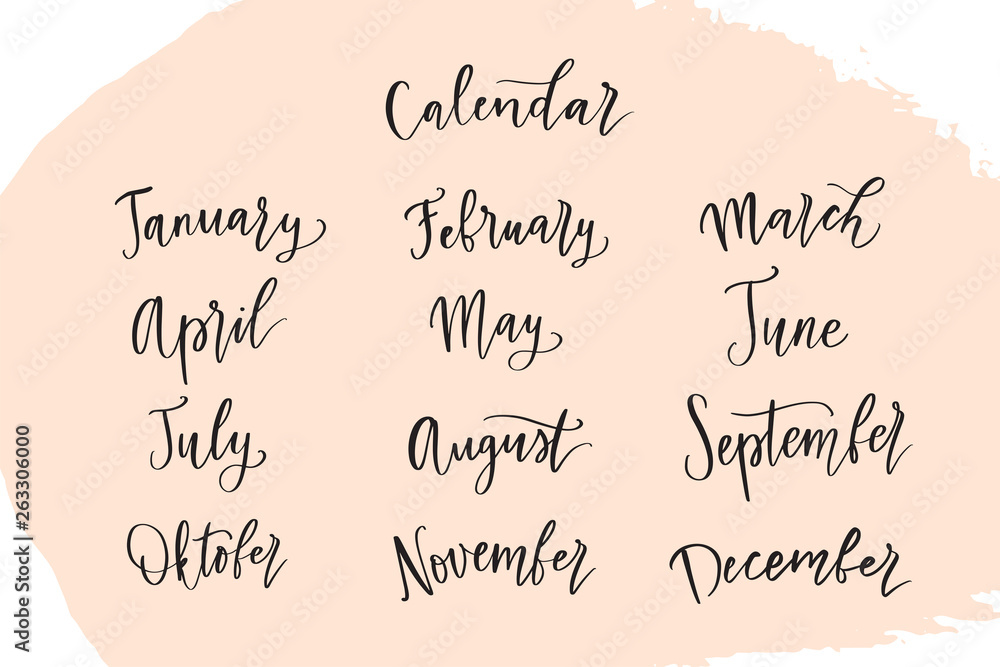 Calendar
January February March
April May June
July August September
Oktofer November December
Adobe Stock | #263306000